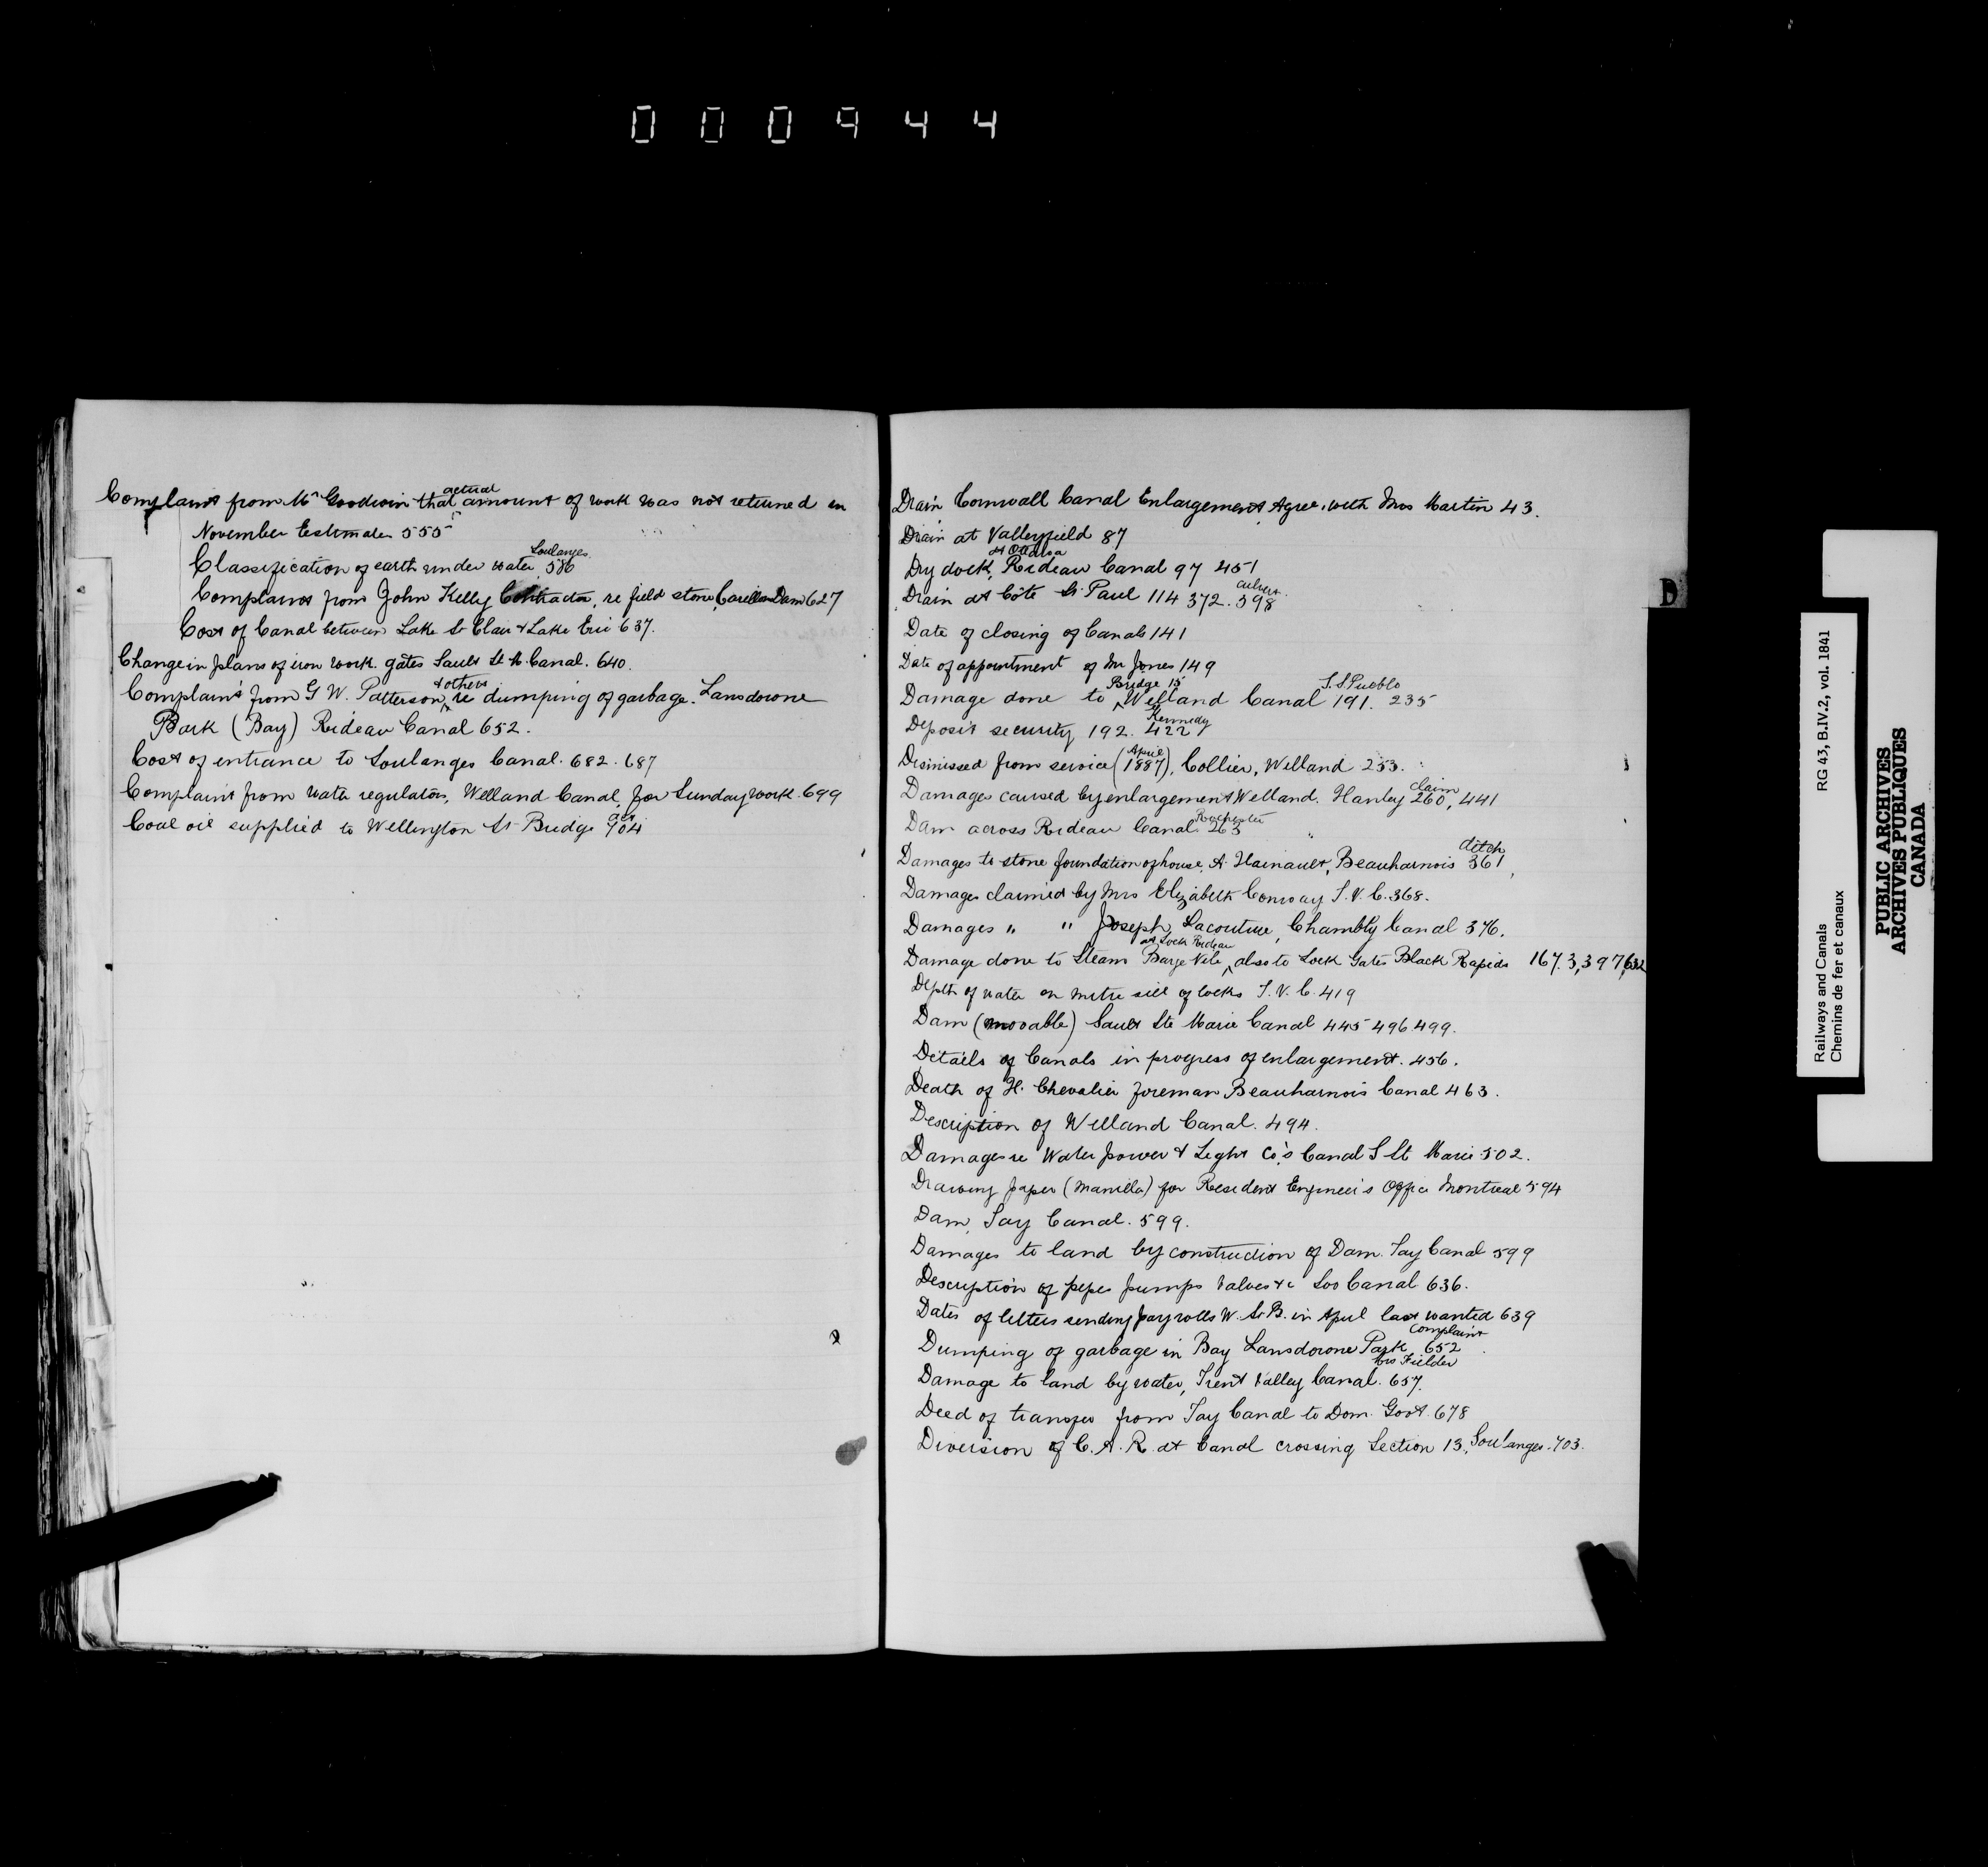 000944
Complaint from Mr Goodwin that actual amount of work was not returned in
November Estimates 555
Classification of earth under water Soulanges 586
Complaint from John Kelly Contractor, re field stone, Carillon Dam 627
Cost of Canal between Lake St Clair & Lake Erie 637.
Change in plans of iron work. gates Sault St M. Canal. 640.
Complaint from G W. Patterson & others re dumping of garbage. Lansdowne
Park (Bay) Rideau Canal 652.
Cost of entrance to Soulanges Canal. 682. 687
Complaint from water regulators, Welland Canal, for Sunday work. 699
Coal oil supplied to Wellington St Bridge 704
Drain Cornwall Canal Enlargement Agree. with Mrs Martin 43.
Drain at Valleyfield 87
Dry dock, at Ottawa Rideau Canal 97 451
Drain at Côte St. Paul 114 372. culvert 398
Date of closing of Canals 141
Date of appointment of Mr Jones 149
Damage done to Bridge 15 Welland Canal 191. S.S. Pueblo 235
Deposit security 192. Kennedy 422
Dismissed from service (April 1887), Collier, Welland 253.
Damages caused by enlargement Welland. Hanley claim 260, 441
Dam across Rideau Canal. Rochester 263
Damages to stone foundation of house, A. Hainault, Beauharnois ditch 361
Damages claimed by Mrs Elizabeth Conway T. V. C. 368.
Damages " " Joseph Lacouture, Chambly Canal 376.
Damage done to Steam Barge Nile at Lock Rideau, also to Lock Gates Black Rapids 167.3,397,632
Depth of water on mitre sill of locks T. V. C. 419
Dam (movable) Sault Ste Marie Canal 445 496. 499.
Details of Canals in progress of enlargement. 456.
Death of H. Chevalier foreman Beauharnois Canal 463.
Description of Welland Canal. 494.
Damages re Water power & Light Co's Canal S St Marie 502.
Drawing paper (Manilla) for Resident Engineer's Office Montreal 594
Dam, Tay Canal. 599.
Damages to land by construction of Dam. Tay Canal 599
Description of pipes pumps valves &c Soo Canal 636.
Dates of letters sending payrolls W. St B. in April last wanted 639
Dumping of garbage in Bay Lansdowne Park complaint 652
Damage to land by water, Trent Valley Canal. Mrs Fielder 657.
Deed of transfer from Tay Canal to Dom. Govt. 678
Diversion of C. A. R. at Canal crossing Section 13, Soulanges. 703.
D
Railways and Canals RG 43, B.IV.2, vol. 1841
Chemins de fer et canaux
PUBLIC ARCHIVES
ARCHIVES PUBLIQUES
CANADA